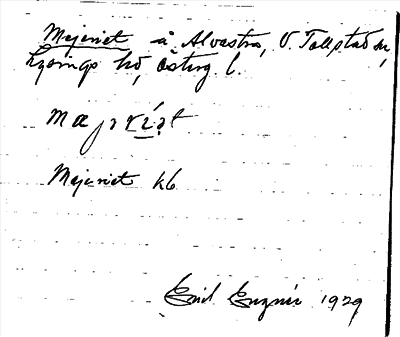 Mejeriet å Alvastra, V. Tollstad sn,
Lysings hd, Österg. l.
mæjrı́ət
Mejeriet kb
Emil Enzner 1929